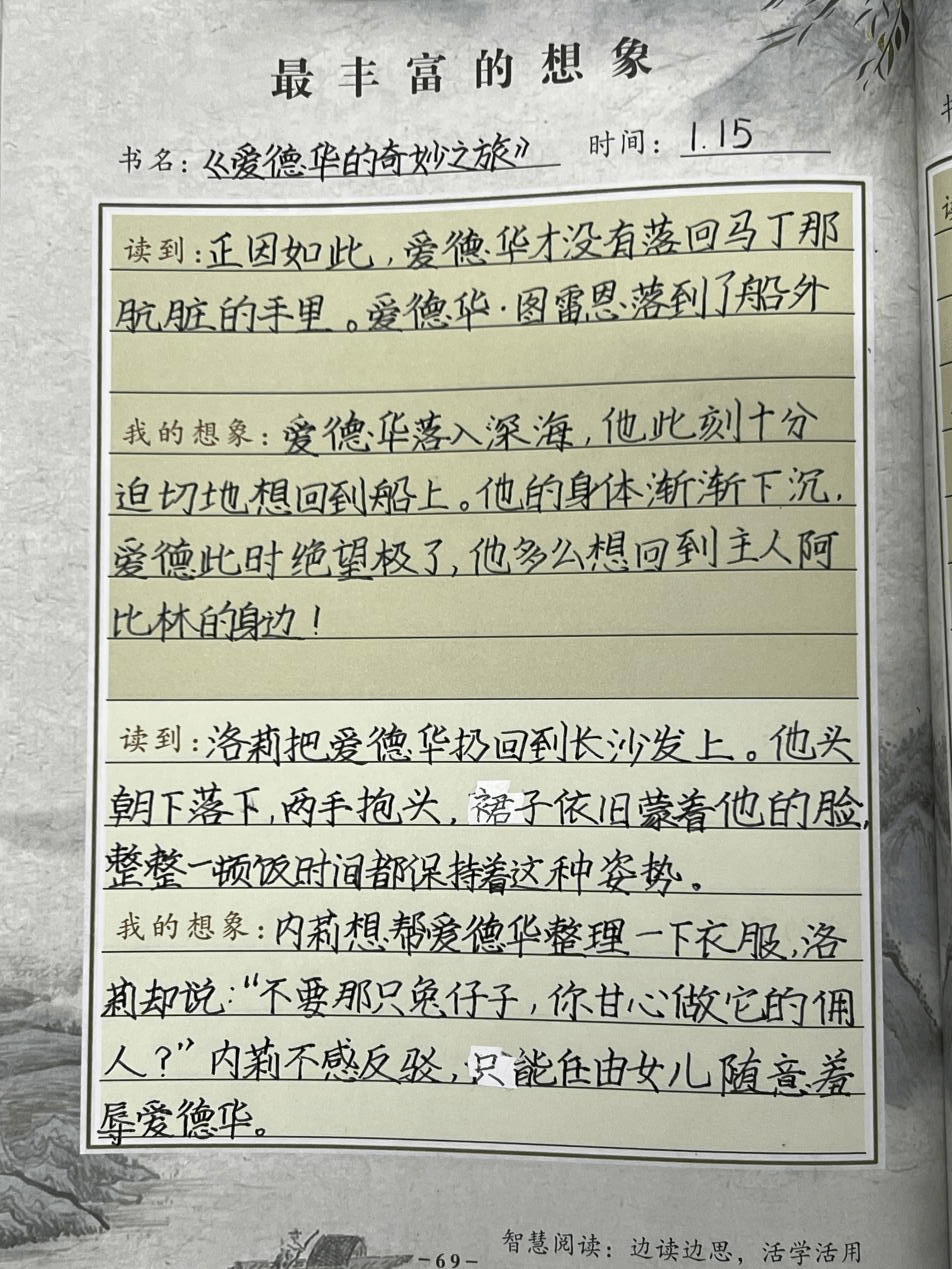 最丰富的想象
书名：《爱德华的奇妙之旅》 时间：1.15
读到：正因如此，爱德华才没有落回马丁那
肮脏的手里。爱德华·图雷恩落到了船外
我的想象：爱德华落入深海，他此刻十分
迫切地想回到船上。他的身体渐渐下沉，
爱德此时绝望极了，他多么想回到主人阿
比林的身边！
读到：洛莉把爱德华扔回到长沙发上。他头
朝下落下，两手抱头，裙子依旧蒙着他的脸，
整整一顿饭时间都保持着这种姿势。
我的想象：内莉想帮爱德华整理一下衣服，洛
莉却说：“不要那只兔仔子，你甘心做它的佣
人？”内莉不感反驳，只能任由女儿随意羞
辱爱德华。
智慧阅读：边读边思，活学活用
-69-